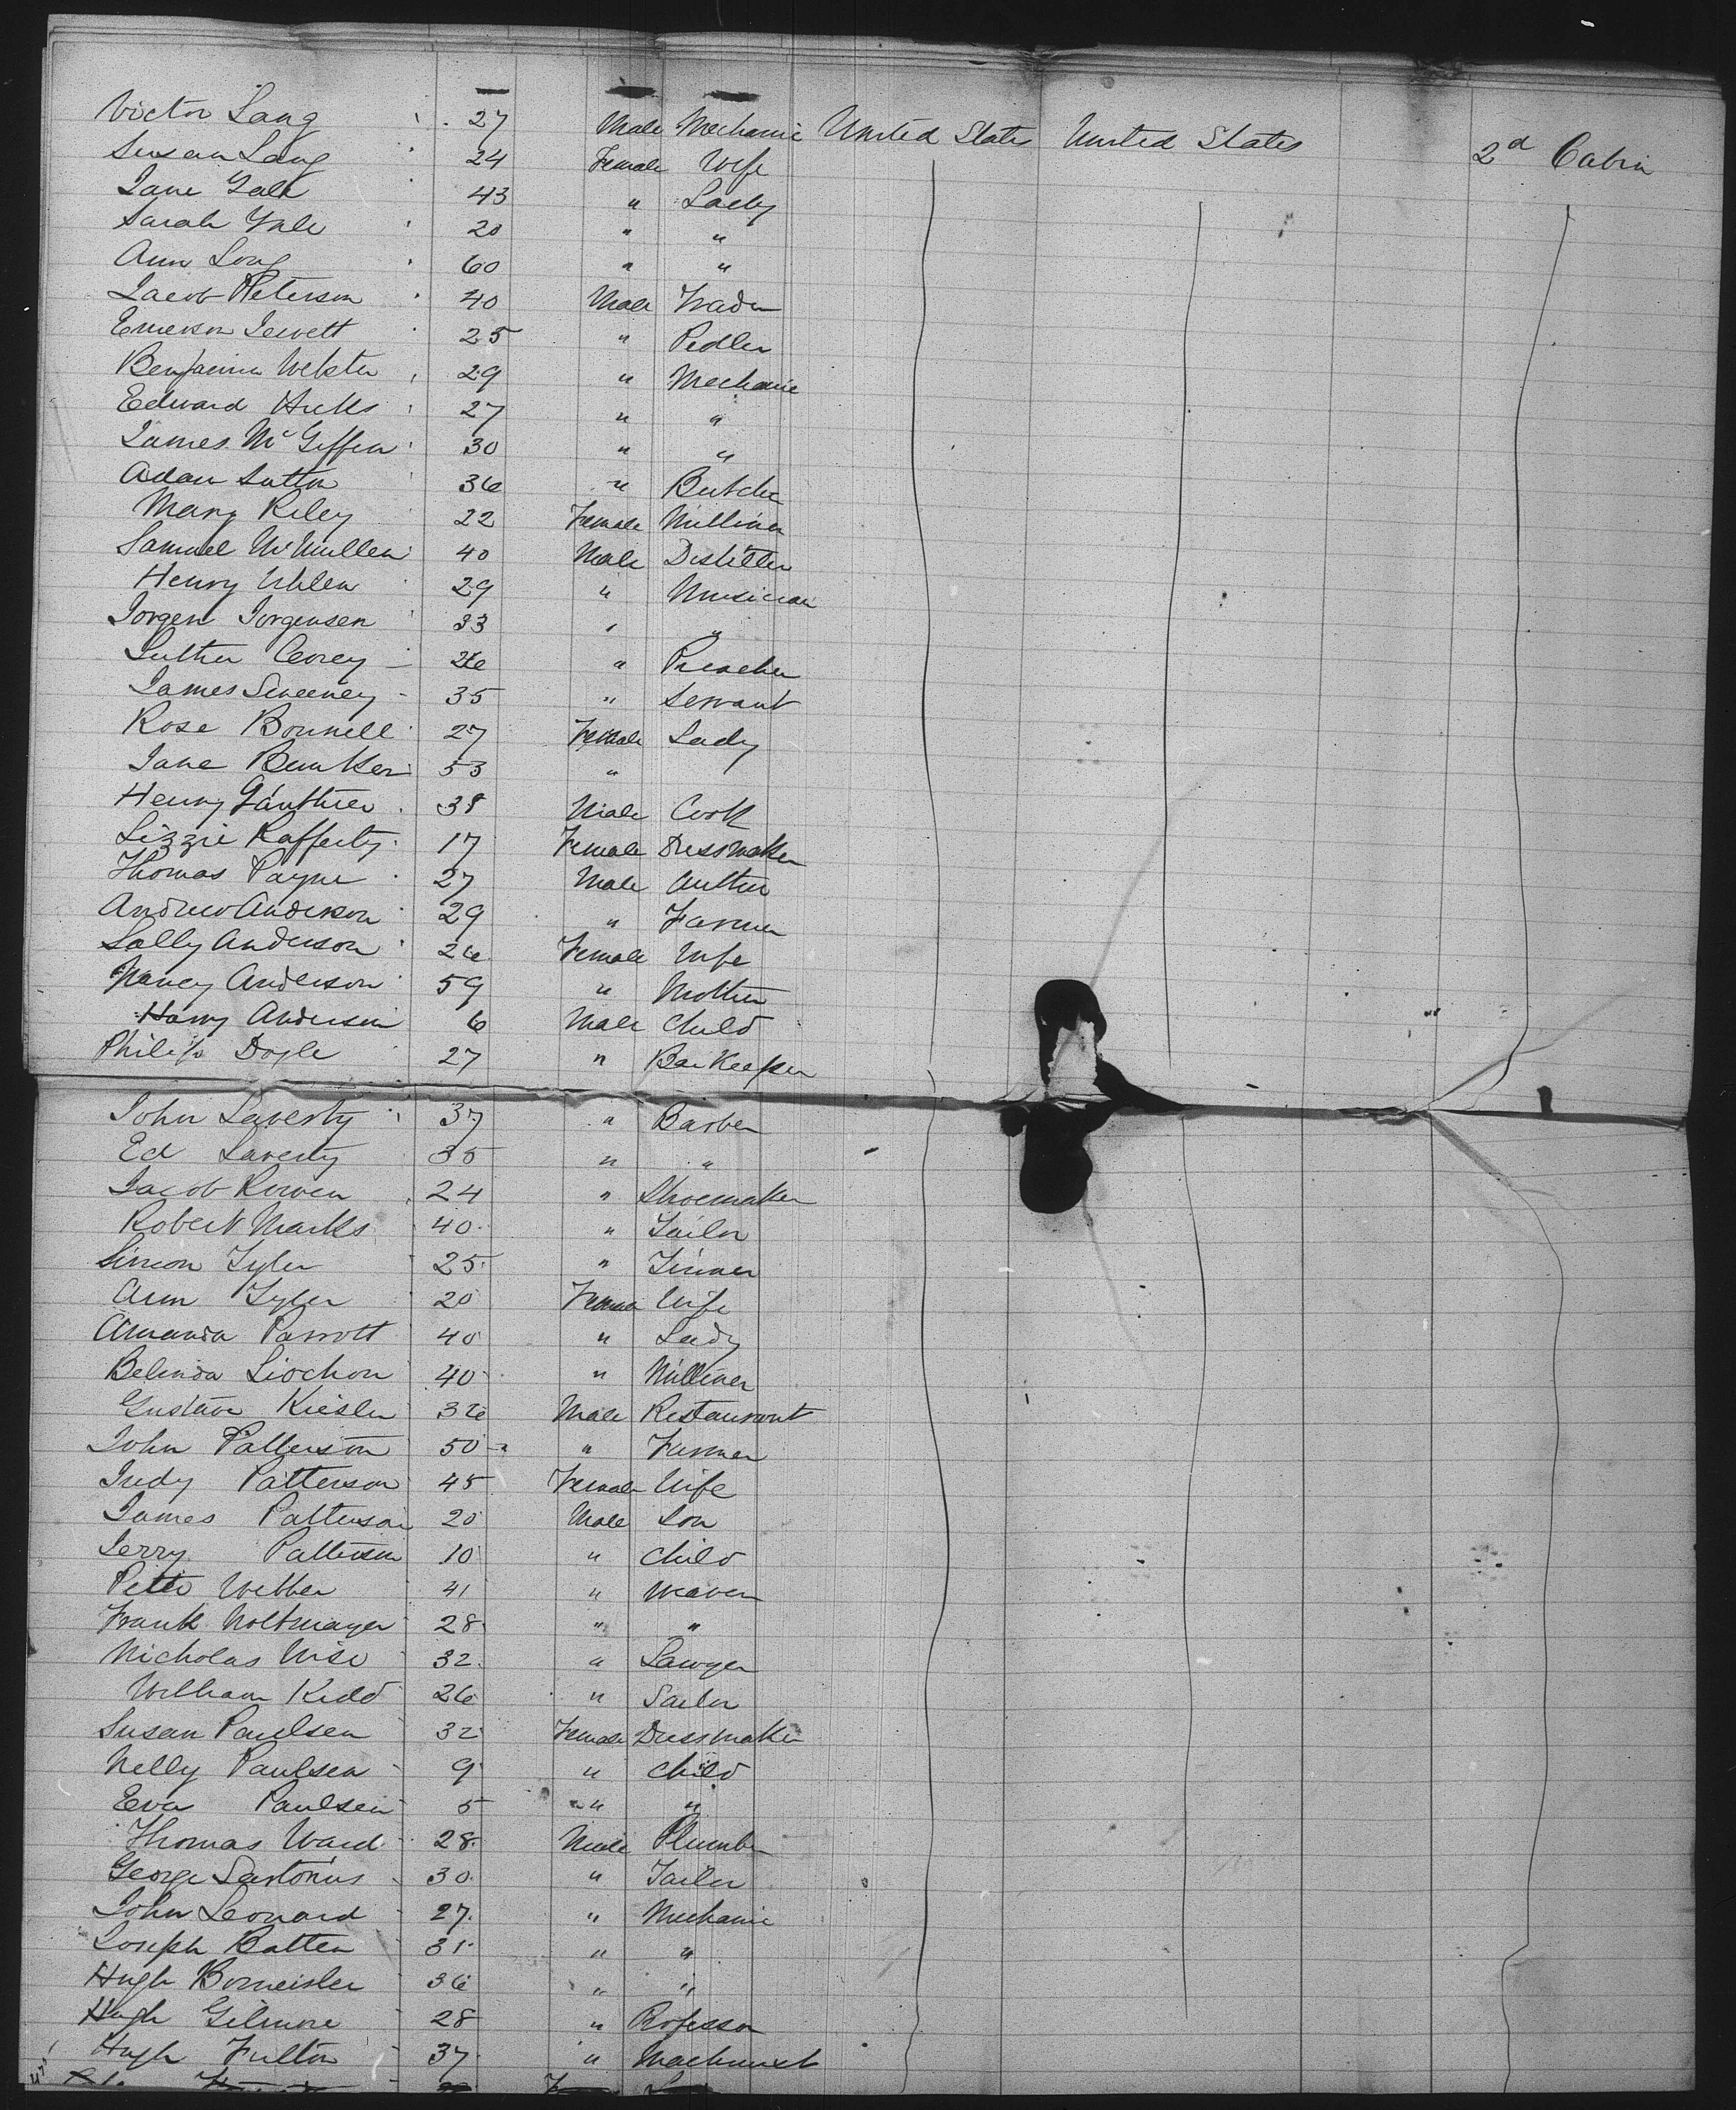 Victor Lang 27 Male Mechanic United States United States 2d Cabin
Susan Lang 24 Female Wife
Jane Gale 43 " Lady
Sarah Gale 20 " "
Ann Long 60 " "
Jacob Peterson 40 Male Trader
Emerson Jewett 25 " Pedler
Benjamin Webster 29 " Mechanic
Edward Hicks 27 " "
James McGiffin 30 " "
Adam Sutton 36 " Butcher
Mary Riley 22 Female Milliner
Samuel McMullen 40 Male Distiller
Henry Uhlen 29 " Musician
Jorgen Jorgensen 33 " "
Luther Corey 26 " Preacher
James Sweeney 35 " Servant
Rose Bonnell 27 Female Lady
Jane Bunker 53 "
Henry Ganthier 38 Male Cook
Lizzie Rafferty 17 Female Dressmaker
Thomas Payne 27 Male Author
Andrew Anderson 29 " Farmer
Sally Anderson 26 Female Wife
Nancy Anderson 59 " Mother
Harry Anderson 6 Male Child
Philip Doyle 27 " Bar Keeper
John Laverty 37 " Barber
Ed Laverty 35 " "
Jacob Rowen 24 " Shoemaker
Robert Marks 40 " Tailor
Simon Tyler 25 " Tinner
Ann Tyler 20 Female Wife
Amanda Parrott 40 " Lady
Belinda Liochon 40 " Milliner
Gustave Kiesler 36 Male Restaurant
John Patterson 50 " Farmer
Judy Patterson 45 Female Wife
James Patterson 20 Male Son
Jerry Patterson 10 " Child
Peter Webber 41 " Weaver
Frank Holtmayer 28 " "
Nicholas Wise 32 " Lawyer
William Kidd 26 " Sailor
Susan Paulsen 32 Female Dressmaker
Nelly Paulsen 9 " Child
Eva Paulsen 5 " "
Thomas Ward 28 Male Plumber
George Sartorius 30 " Tailor
John Leonard 27 " Mechanic
Joseph Batten 31 " "
Hugh Bomeisler 36 " "
Hugh Gilmore 28 " Professor
Hugh Fulton 37 " Machinist